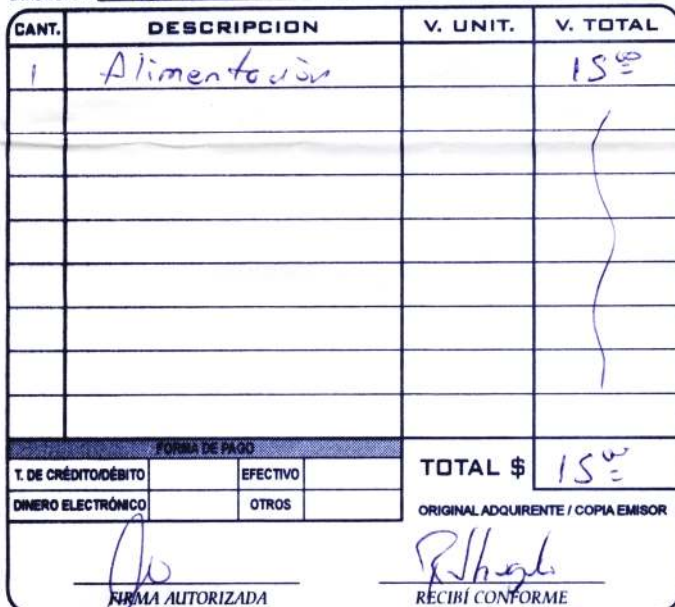 CANT. DESCRIPCION V. UNIT. V. TOTAL
1 Alimentación 15 00
FORMA DE PAGO
T. DE CRÉDITO/DÉBITO EFECTIVO
DINERO ELECTRÓNICO OTROS
TOTAL $ 15 00
ORIGINAL ADQUIRENTE / COPIA EMISOR
FIRMA AUTORIZADA RECIBÍ CONFORME